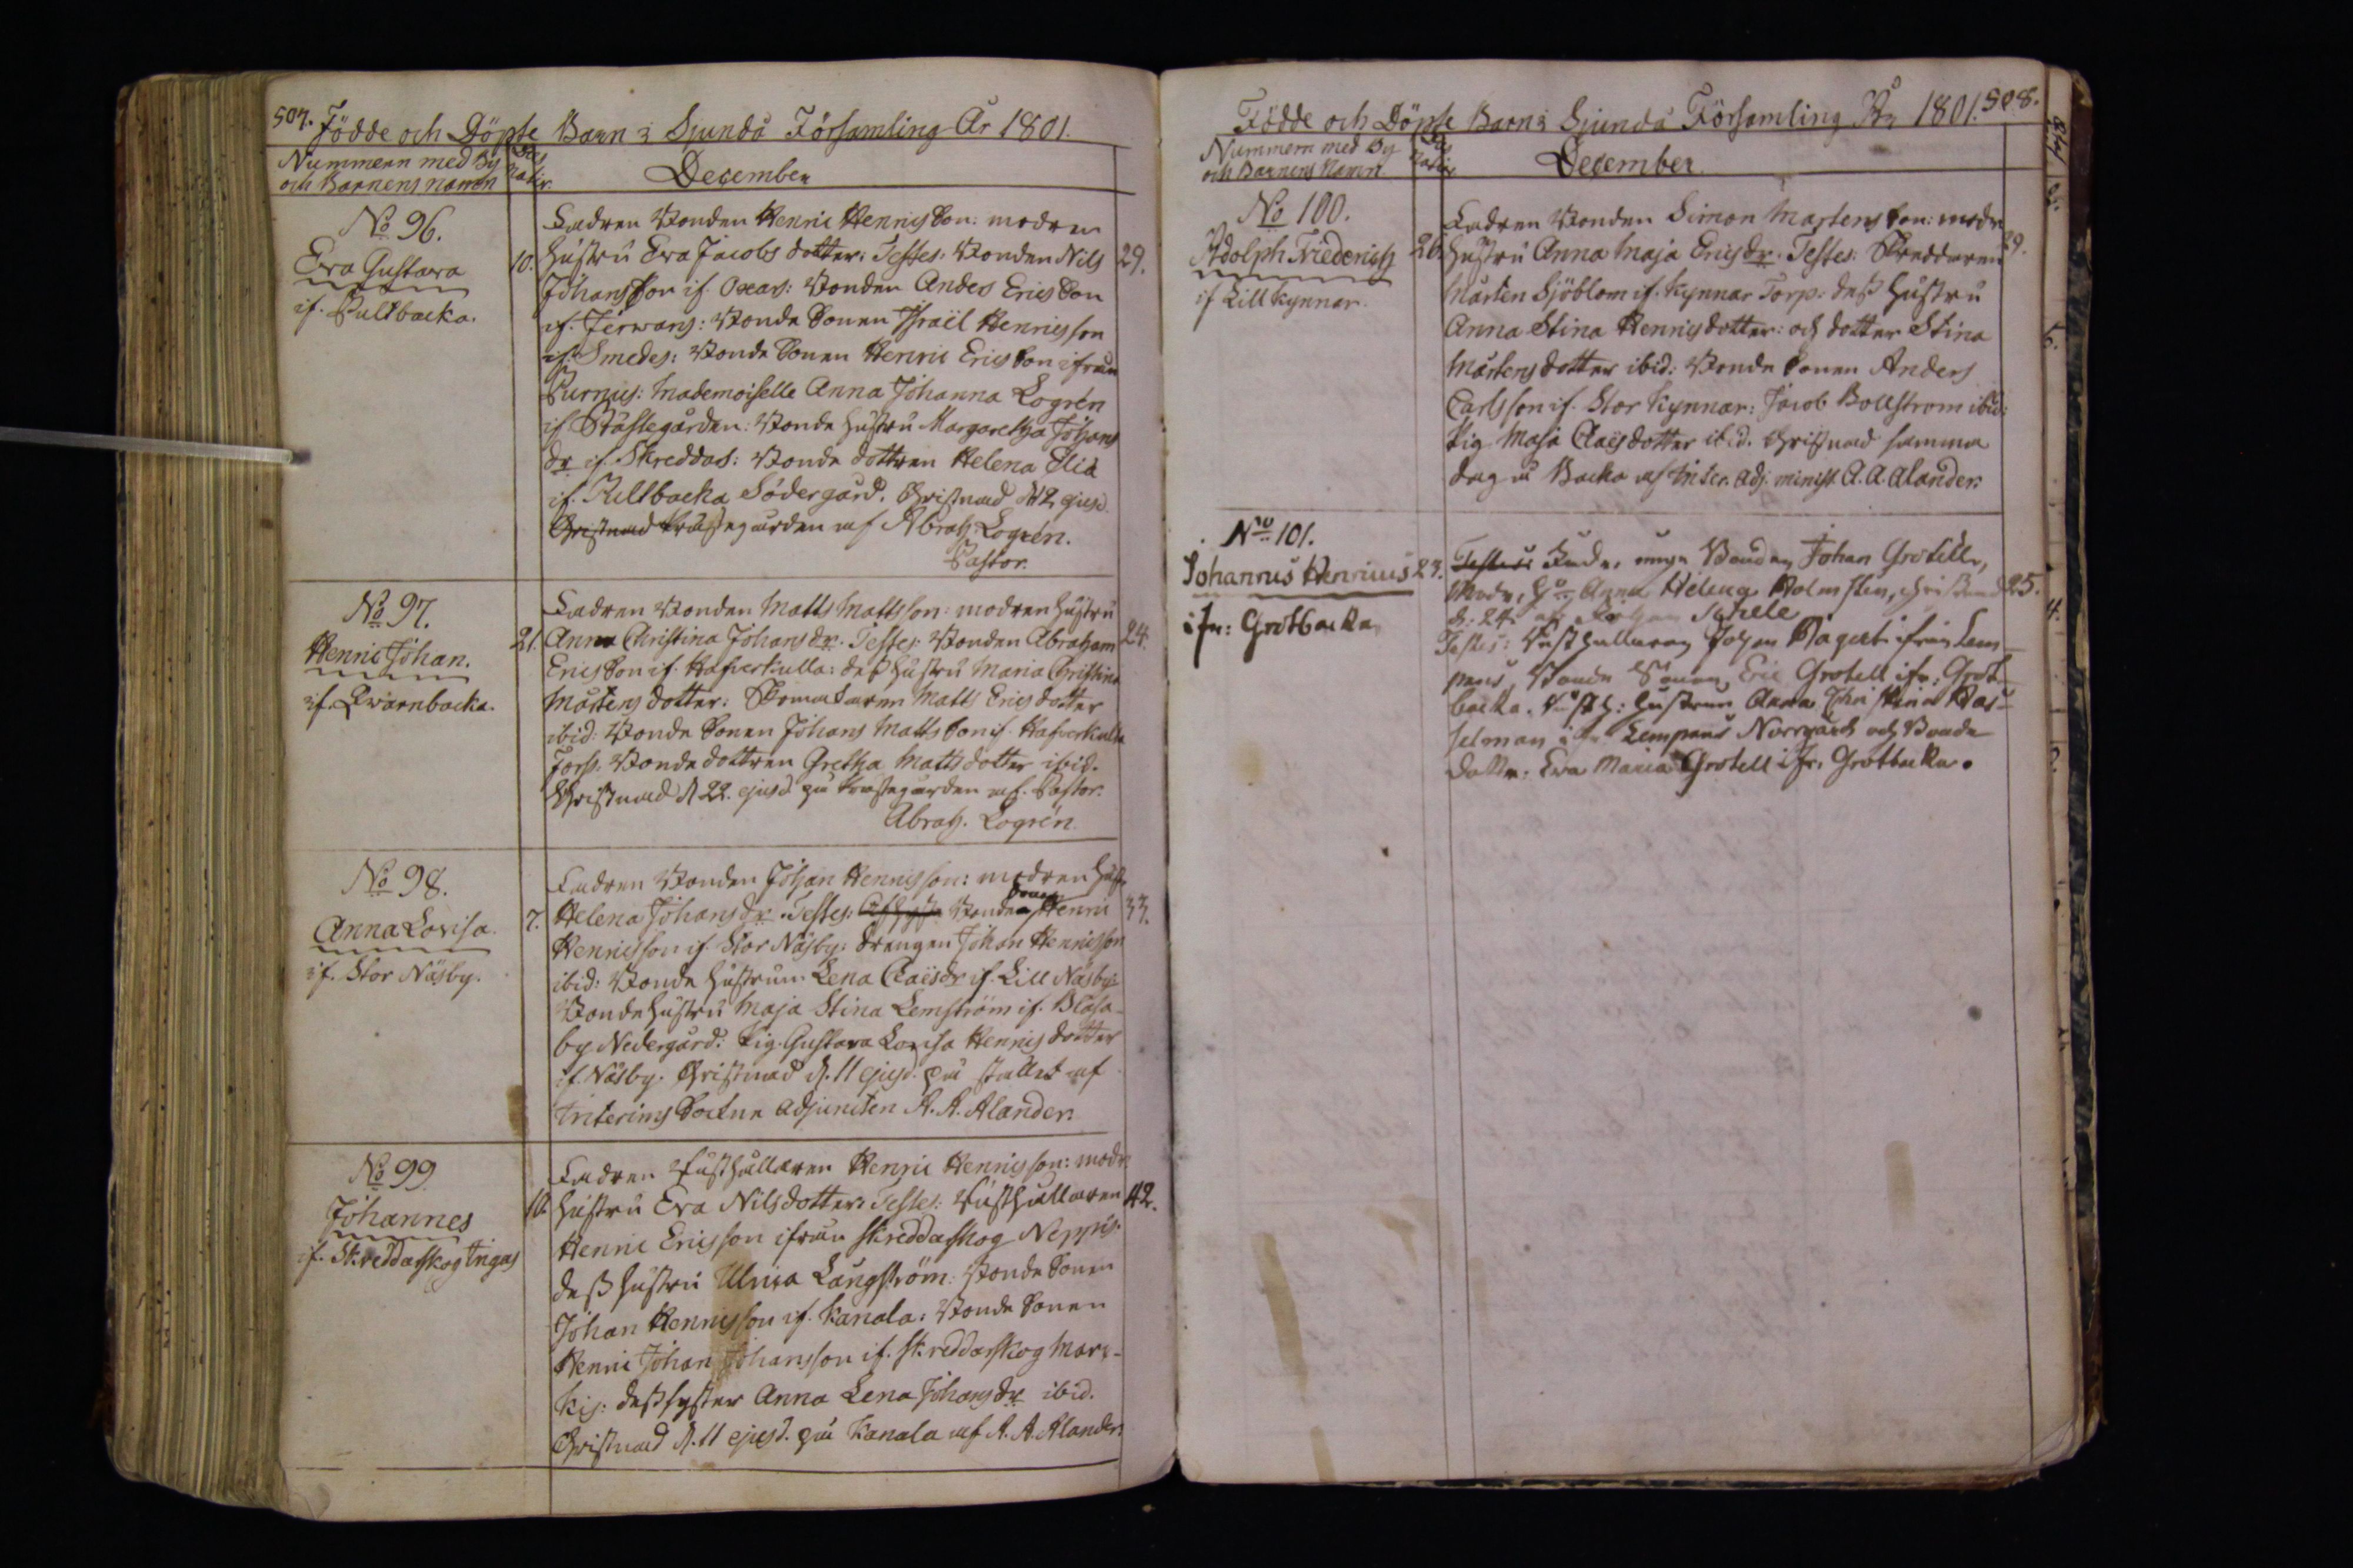 507. Födde och Döpte Barn i Sjundå Församling År 1801.
Nummern med By
och Barnens namn
Dies
Nativ.
December
No 96.
Eva Gustava
if. Pultbacka.
10.
Fadren Bonden Henric Henricsson: modren
hustru Eva Jacobs dotter: Testes: Bonden Nils
29.
Johansson if. Oxars: Bonden Anders Ericsson
if. Jerwans: Bonde Sonen Israël Henricsson
if. Smedes: Bonde Sonen Henric Ericsson ifrån
Purnus: Mademoiselle Anna Johanna Logrén
if. Prästegården: Bonde hustru Margaretha Johans
dr if. Skreddas: Bonde dottren Helena Elia
if. Pultbacka Södergård. Christnad d. 12 ejusd.
Christnad Prästegården af Abrah. Logrén.
Pastor.
No 97.
Henric Johan.
if. Qwarnbacka.
21.
Fadren Bonden Matts Mattsson: modren hustru
Anna Christina Johansdr. Testes: Bonden Abraham
24.
Ericsson if. Hafverkulla: dess hustru Maria Christina
Mårtens dotter: Skomakaren Matts Erics dotter
ibid: Bonde Sonen Johans Mattsson if. Hafverkulla
Torp: Bonde dottren Gretha Matts dotter ibid.
Christnad d. 22. ejusd. på Prästegården af. Pastor.
Abrah. Logrén
No 98.
Anna Lovisa.
if. Stor Näsby.
7.
Fadren Bonden Johan Henricsson: modren hustr
Sonen
Helena Johansdr. Testes: Bonde Henric
33.
Henricsson if. Stor Näsby: Drengen Johan Henricsson
ibid: Bonde hustrun Lena Claësdr if. Lill Näsby:
Bonde hustru Maja Stina Lemström if. Blåsa-
by Nedergård: Pig. Gustava Lovisa Henrics dotter
if. Näsby. Christnad d. 11 ejusd. på stället af
Interims Sockne Adjuncten A. A. Alander.
No 99
Johannes
if. Skreddarskog Irigas
10.
Fadren Rusthållaren Henric Henricsson: modr.
hustru Eva Nilsdotter: Testes: Rusthållaren
42.
Henric Ericsson ifrån Skreddarskog Neppus:
dess hustru Ulrica Långström: Bonde Sonen
Johan Henricsson if. Kanala: Bonde Sonen
Henric Johan Johansson if. Skreddarskog Mar-
kis: dess syster Anna Lena Johansdr ibid.
Christnad d. 11 ejusd. på Kanala af A. A. Alander.
Födde och Döpte Barn i Sjundå Församling År 1801. 508.
Nummern med By
och Barnens Namn
Dies
Nativ.
December.
No 100.
Adolph Friedrich
if Lill Kynnar.
26.
Fadren Bonden Simon Mårtensson: modr
hustru Anna Maja Ericsdr. Testes: Skreddaren
29.
Mårten Sjöblom if. Kynnar Torp: dess hustru
Anna Stina Henricsdotter: och dotter Stina
Mårtens dotter ibid: Bonde Sonen Anders
Carlsson if. Stor Kynnar: Jacob Bollstrom ibid:
Pig. Maja Claësdotter ibid. Christnad samma
dag å Backa af Inter. Adj. minist. A. A. Alander.
No 101.
Johannes Henricus
ifr: Grotbacka
23.
Testes: Fadr. unge Bonden Johan Grotell,
Modr. Hu Anna Helena Holmsten, Christnad
25.
d. 24 af Johan
Testes: Rusthållaren Johan ifrån Lem-
pans, Bonde Sonen Eric Grotell ifr: Grot
backa. Rusth: hustrun Anna Christina Has-
selman ifr Lempans Norrgård och Bonde
Dottr. Eva Maria Grotell ifr: Grotbacka.